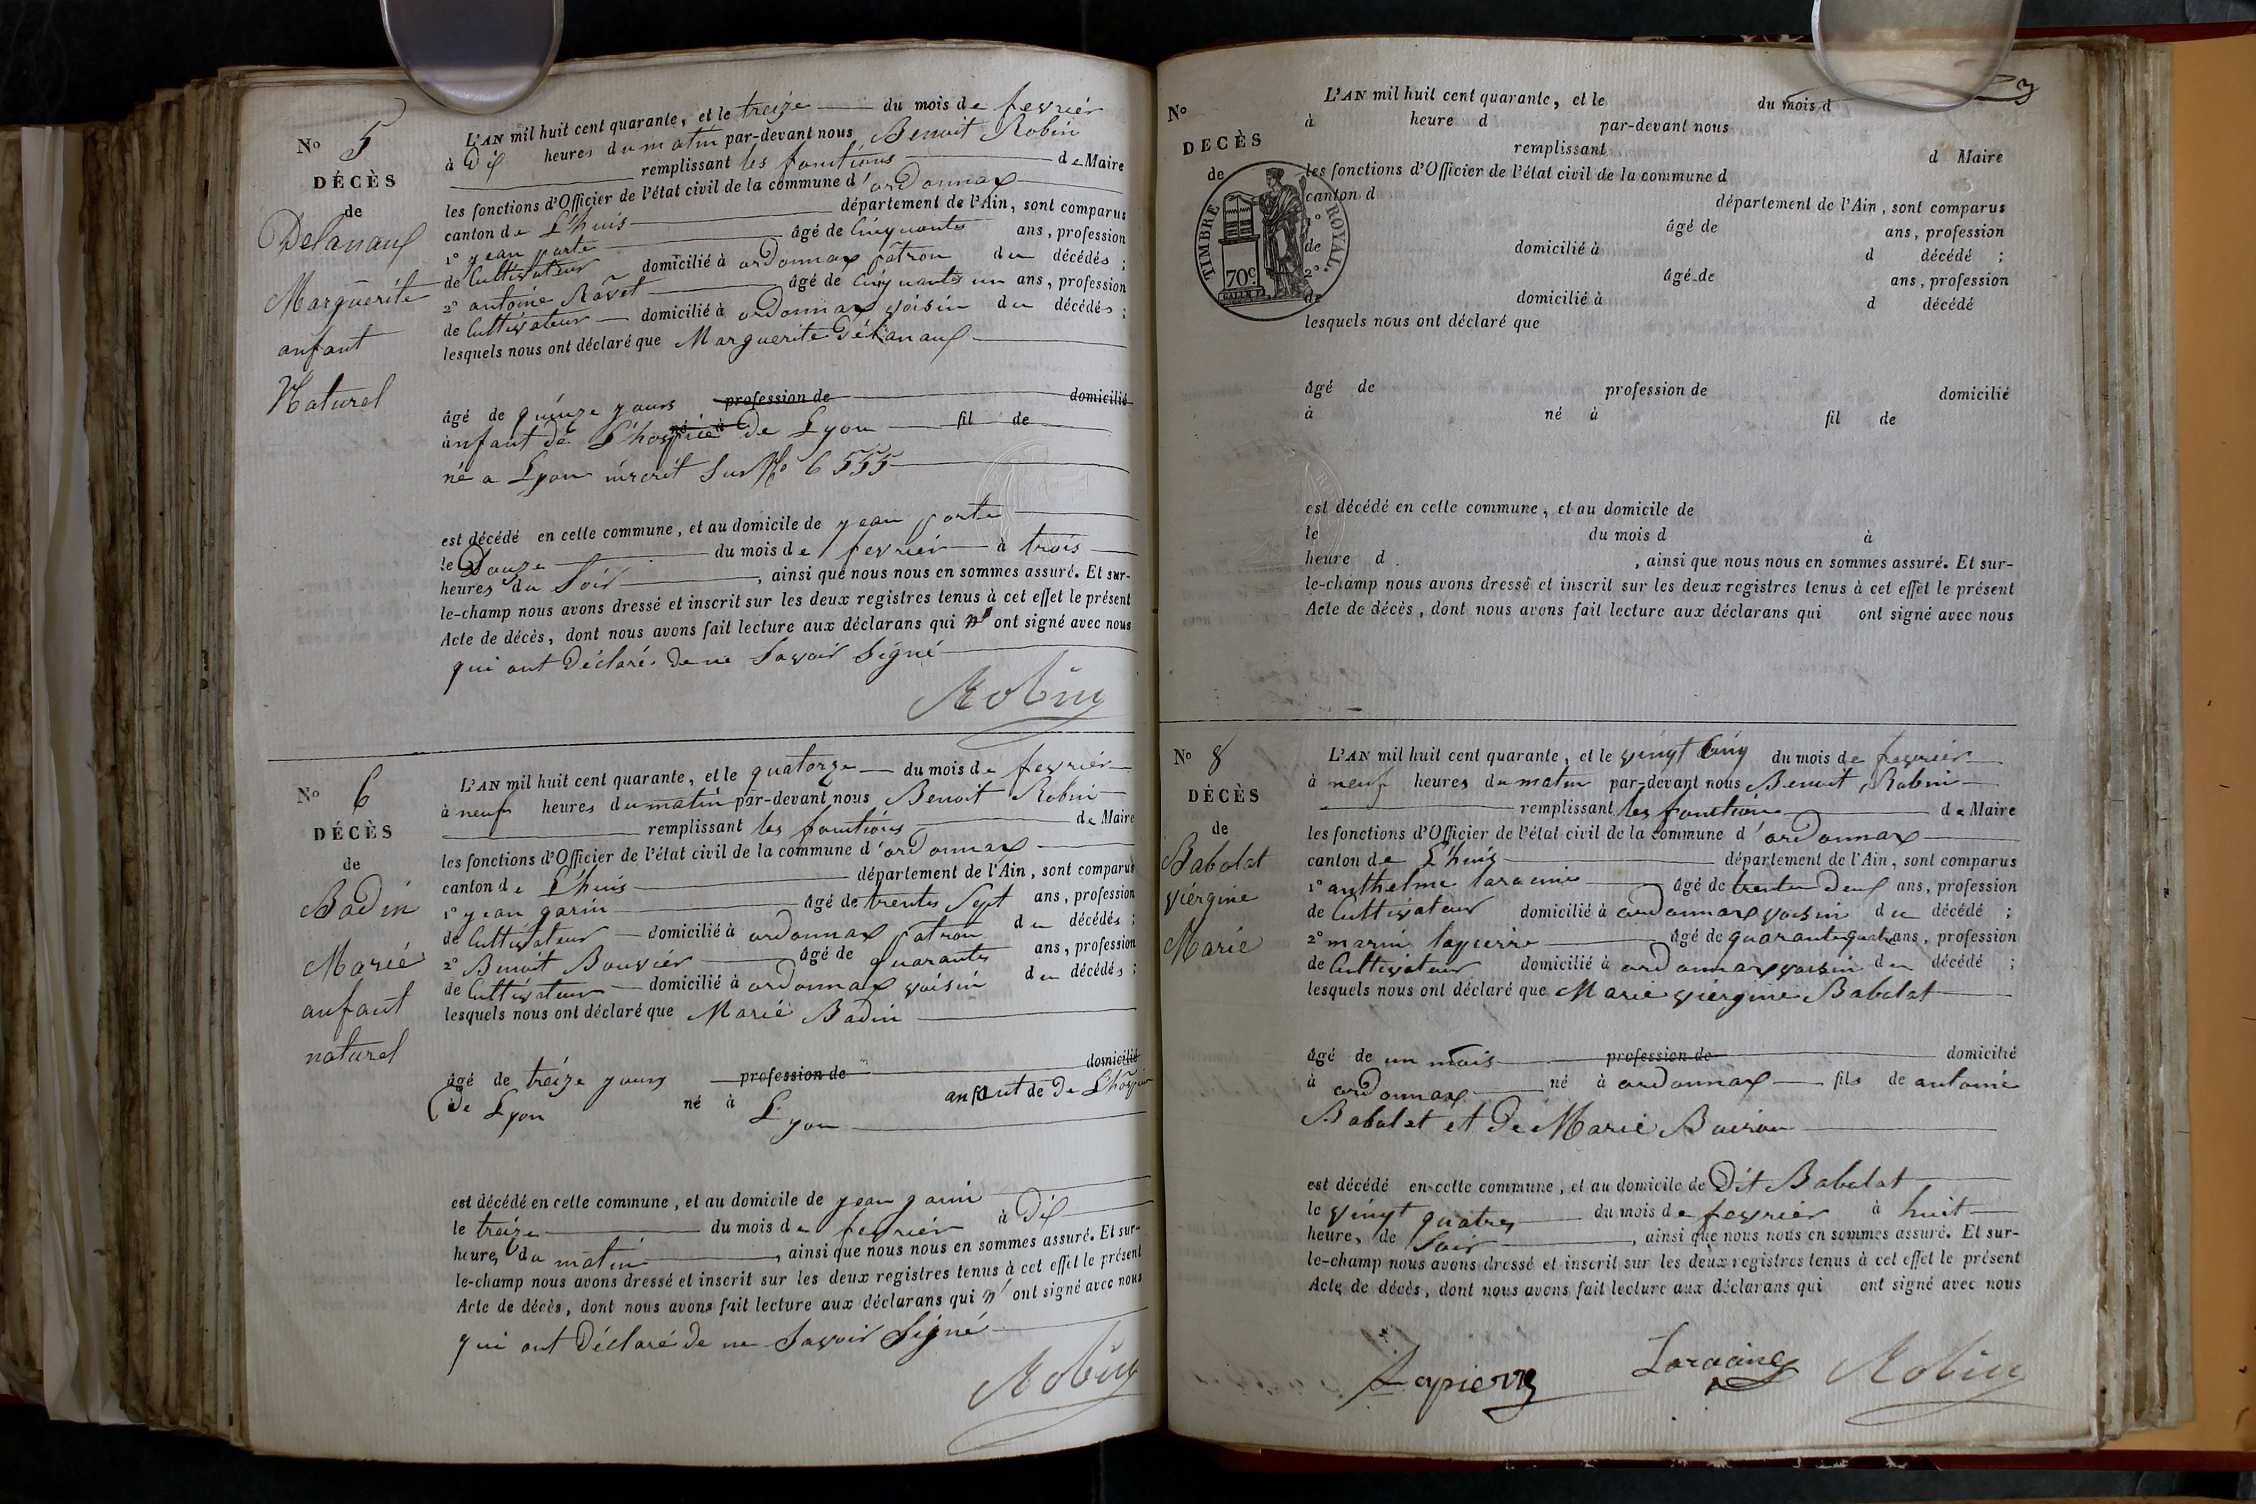 N° 5
DÉCÈS
de
Delanaux
Marguerite
anfant
Naturel
L'AN mil huit cent quarante, et le treize du mois de fevriér
à Dix heures du matin par-devant nous Benoit Robin
remplissant les fonctions de Maire
les fonctions d'Officier de l'état civil de la commune d'ordonnax
canton de L'huis département de l'Ain, sont comparus
1° jean porte âgé de Cinquante ans, profession
de Cultivateur domicilié à ordonnax patron du décédés ;
2° antoine Ravet âgé de Cinquante un ans, profession
de Cultivateur domicilié à ordonnax voisin du décédés ;
lesquels nous ont déclaré que Marguerite Délanaux
âgé de quinze jours profession de domicilié
anfant de L'hospice né à de Lyon fil de
né a Lyon inscrit Sur N° 6555
est décédé en cette commune, et au domicile de jean porte
le Douze du mois de fevriér à trois
heures du Soir, ainsi que nous nous en sommes assuré. Et sur-
le-champ nous avons dressé et inscrit sur les deux registres tenus à cet effet le présent
Acte de décès, dont nous avons fait lecture aux déclarans qui n' ont signé avec nous
qui ont Déclaré de ne Savoir Signé
Robin
N° 6
DÉCÈS
de
Badin
Marié
anfant
naturel
L'AN mil huit cent quarante, et le quatorze du mois de fevriér
à neuf heures du matin par-devant nous Benoit Robin
remplissant les fonctions de Maire
les fonctions d'Officier de l'état civil de la commune d'ordonnax
canton de L'huis département de l'Ain, sont comparus
1° jean garin âgé de trente Sept ans, profession
de Cultivateur domicilié à ordonnax patron du décédés ;
2° Benoit Bouviér âgé de quarante ans, profession
de Cultivateur domicilié à ordonnax voisin du décédés ;
lesquels nous ont déclaré que Marié Badin
âgé de treize jours profession de domicilié
à de Lyon né à Lyon anfant de De L'hospice
est décédé en cette commune, et au domicile de jean garin
le treize du mois de fevriér à Dix
heures du matin, ainsi que nous nous en sommes assuré. Et sur-
le-champ nous avons dressé et inscrit sur les deux registres tenus à cet effet le présent
Acte de décès, dont nous avons fait lecture aux déclarans qui n' ont signé avec nous
qui ont Déclaré de ne Savoir Signé
Robin
3
N°
DECÈS
de
TIMBRE ROYAL.
70c
L'AN mil huit cent quarante, et le du mois d
à heure d par-devant nous
remplissant d Maire
les fonctions d'Officier de l'état civil de la commune d
canton d département de l'Ain, sont comparus
1° âgé de ans, profession
de domicilié à d décédé ;
2° âgé de ans, profession
de domicilié à d décédé
lesquels nous ont déclaré que
âgé de profession de domicilié
à né à fil de
est décédé en cette commune, et au domicile de
le du mois d à
heure d , ainsi que nous nous en sommes assuré. Et sur-
le-champ nous avons dressé et inscrit sur les deux registres tenus à cet effet le présent
Acte de décès, dont nous avons fait lecture aux déclarans qui ont signé avec nous
N° 8
DÉCÈS
de
Babolat
viérgine
Marie
L'AN mil huit cent quarante, et le vingt Cinq du mois de fevriér
à neuf heures du matin par-devant nous Benoit Robin
remplissant les fonctions de Maire
les fonctions d'Officier de l'état civil de la commune d'ordonnax
canton de L'huis département de l'Ain, sont comparus
1° anthelme laracine âgé de trente Deux ans, profession
de Cultivateur domicilié à ordonnax voisin du décédé ;
2° marin lapierre âgé de quarante quatre ans, profession
de Cultivateur domicilié à ordonnax voisin du décédé ;
lesquels nous ont déclaré que Marie viérgine Babolat
âgé de un mois profession de domicilié
à ordonnax né à ordonnax fils de antoine
Babolat et de Marié Buiron
est décédé en cette commune, et au domicile de Dit Babolat
le vingt quatre du mois de fevriér à huit
heures de Soir, ainsi que nous nous en sommes assuré. Et sur-
le-champ nous avons dressé et inscrit sur les deux registres tenus à cet effet le présent
Acte de décès, dont nous avons fait lecture aux déclarans qui ont signé avec nous
Lapierre Laracine Robin